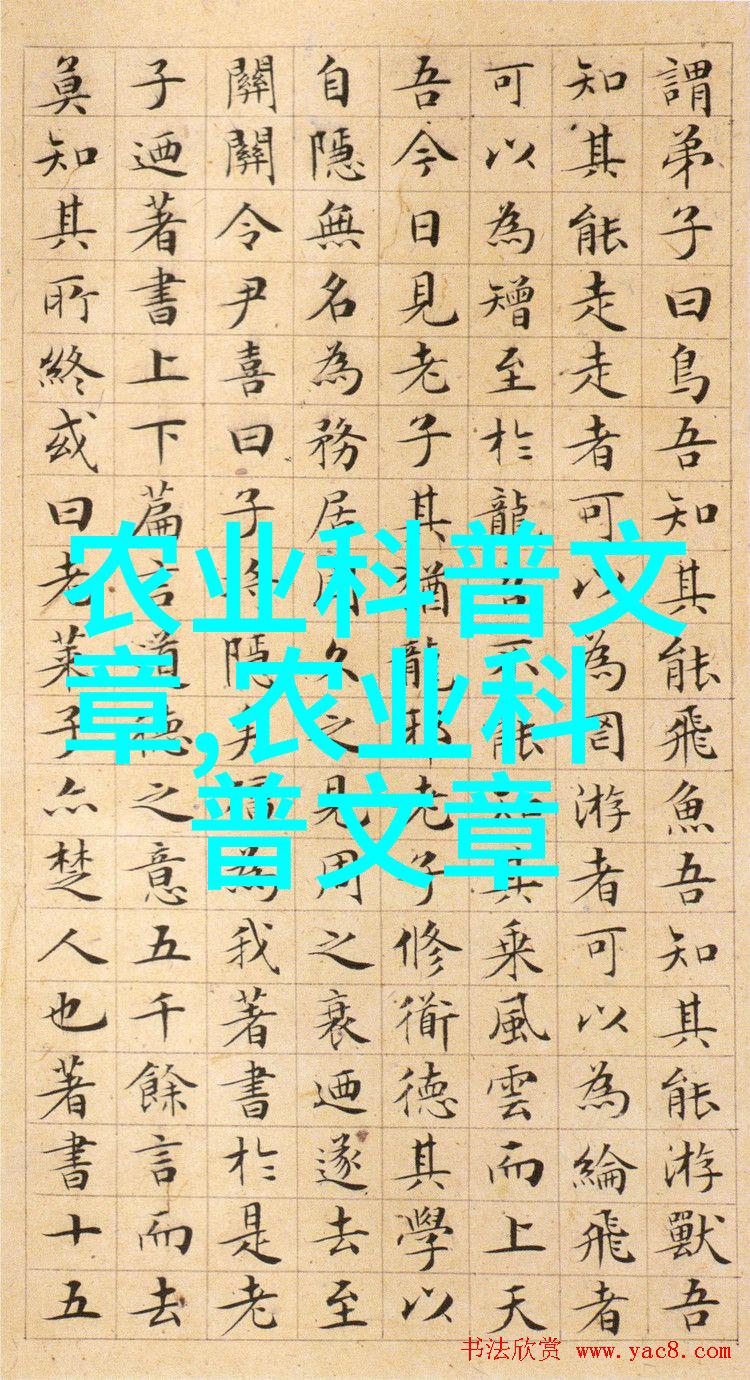 謂弟子曰鳥吾知其能飛魚吾知其能游獸吾
知其能走走者可以為罔游者可以為綸飛者
可以為矰至於龍吾不能知其乘風雲而上天
吾今日見老子其猶龍邪老子修衜德其學以
自隱無名為務居周久之見周之衰迺遂去至
關關令尹喜曰子將隱矣彊為我著書於是老
子迺著書上下篇言道德之意五千餘言而去
莫知其所終或曰老萊子亦楚人也著書十五
农业科普文
章,农业科
普文章
书法欣赏 www.yac8.com